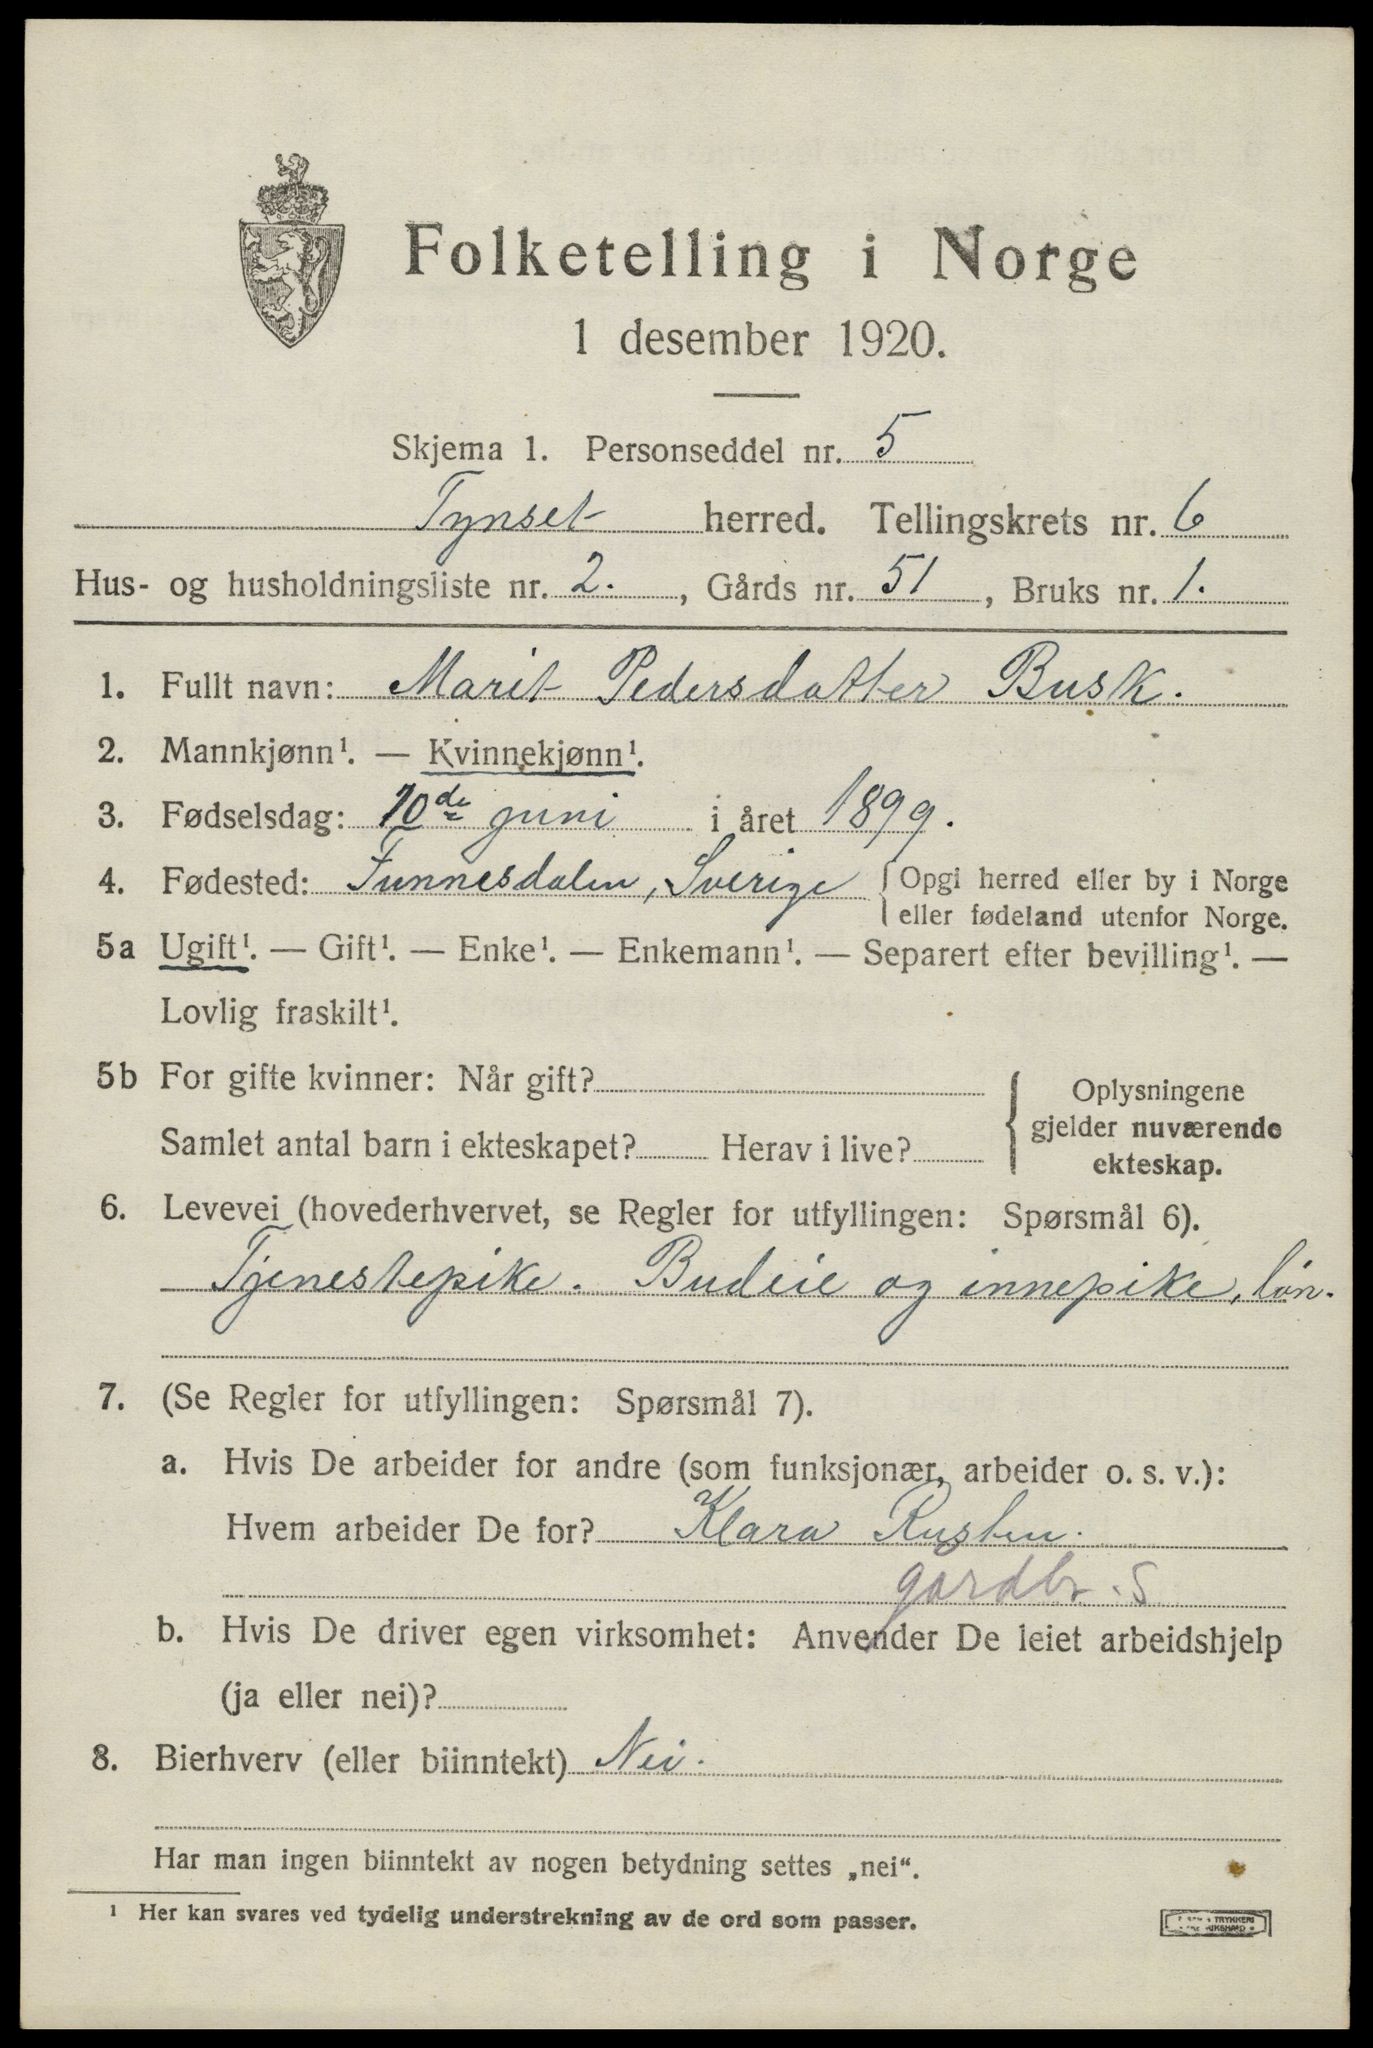 Folketelling i Norge
1 desember 1920.
Skjema 1. Personseddel nr. 5
Tynset herred. Tellingskrets nr. 6
Hus- og husholdningsliste nr. 2. , Gårds nr. 51 , Bruks nr. 1.
1. Fullt navn: Marit Pedersdatter Busk.
2. Mannkjønn¹. — Kvinnekjønn¹.
3. Fødselsdag: 10de juni i året 1899.
4. Fødested: Funnesdalen, Sverige { Opgi herred eller by i Norge
eller fødeland utenfor Norge.
5a Ugift¹. — Gift¹. — Enke¹. — Enkemann¹. — Separert efter bevilling¹. —
Lovlig fraskilt¹.
5b For gifte kvinner: Når gift?
Samlet antal barn i ekteskapet? Herav i live?
{ Oplysningene
gjelder nuværende
ekteskap.
6. Levevei (hovederhvervet, se Regler for utfyllingen: Spørsmål 6).
Tjenestepike. Budeie og innepike, løn.
7. (Se Regler for utfyllingen: Spørsmål 7).
a. Hvis De arbeider for andre (som funksjonær, arbeider o. s. v.):
Hvem arbeider De for? Klara Rusten.
gardbr. S
b. Hvis De driver egen virksomhet: Anvender De leiet arbeidshjelp
(ja eller nei)?
8. Bierhverv (eller biinntekt) Nei.
Har man ingen biinntekt av nogen betydning settes „nei".
¹ Her kan svares ved tydelig understrekning av de ord som passer.